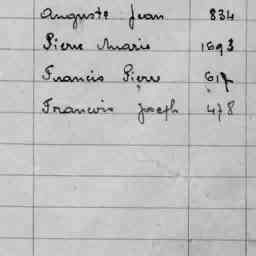 Auguste Jean 834
Pierre Marie 1693
Francis Pierre 617
Francois Joseph 478